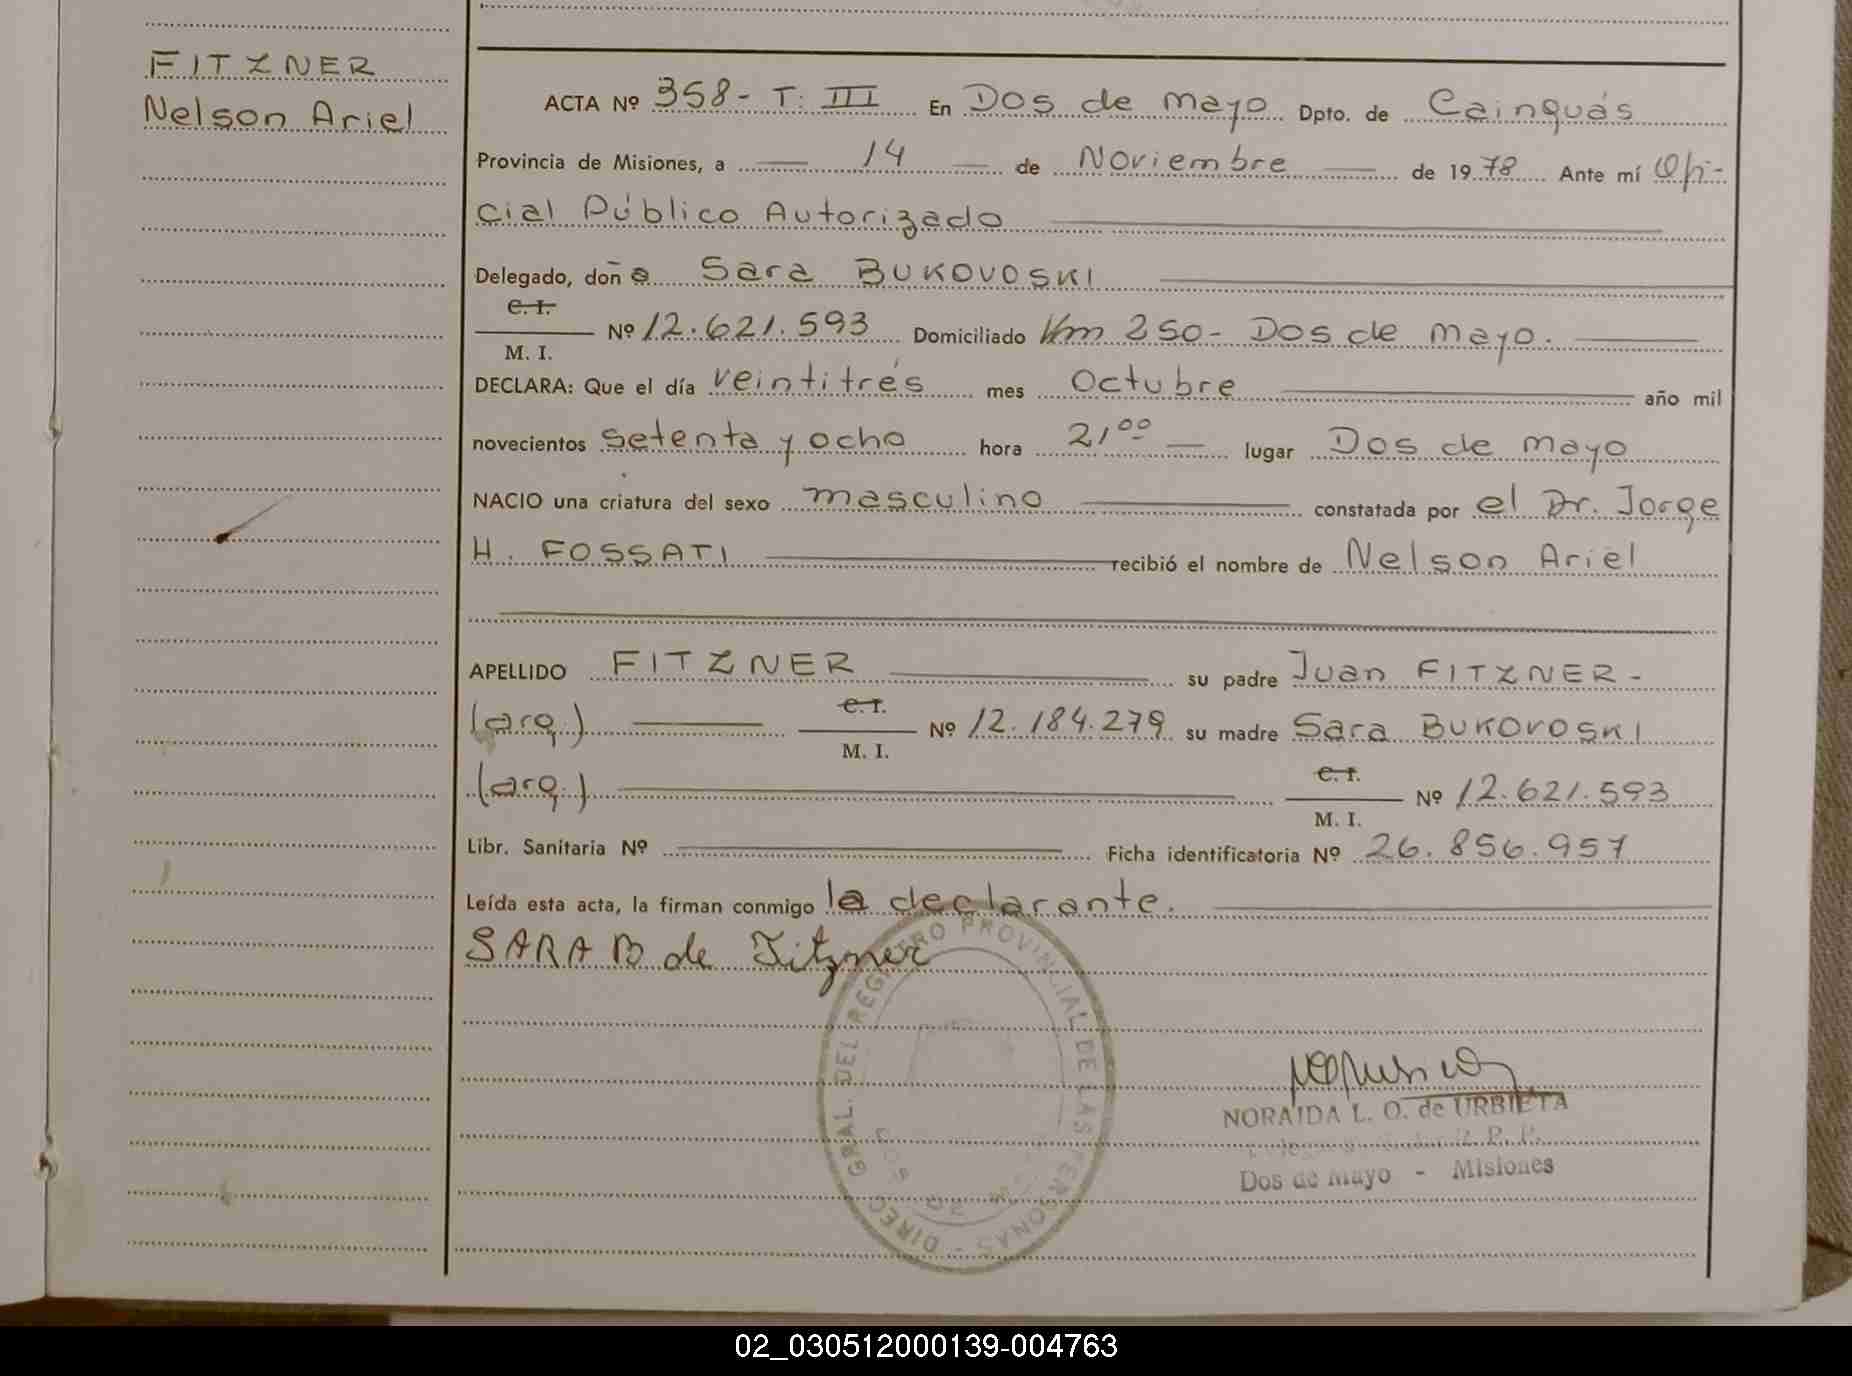 FITZNER
Nelson Ariel
ACTA Nº 358- T. III En Dos de mayo Dpto. de Cainguás
Provincia de Misiones, a 14 de Noviembre de 1978 Ante mí Ofi-
cial Público Autorizado
Delegado, doña Sara BUKOVOSKI
C. I.
M. I. Nº 12.621.593 Domiciliado Km 250- Dos de mayo.
DECLARA: Que el día veintitrés mes Octubre año mil
novecientos setenta y ocho hora 21 00 lugar Dos de mayo
NACIO una criatura del sexo masculino constatada por el Dr. Jorge
H. FOSSATI recibió el nombre de Nelson Ariel
APELLIDO FITZNER su padre Juan FITZNER -
(arg.) C. I. M. I. Nº 12.184.279 su madre Sara BUKOVOSKI
(arg.) C. I. M. I. Nº 12.621.593
Libr. Sanitaria Nº Ficha identificatoria Nº 26.856.957
Leída esta acta, la firman conmigo la declarante.
SARA B de Fitzner
DIREC. GRAL. DEL REGISTRO PROVINCIAL DE LAS PERSONAS -
NORAIDA L. O. de URBIETA
R. P. P.
Dos de Mayo - Misiones
02_030512000139-004763